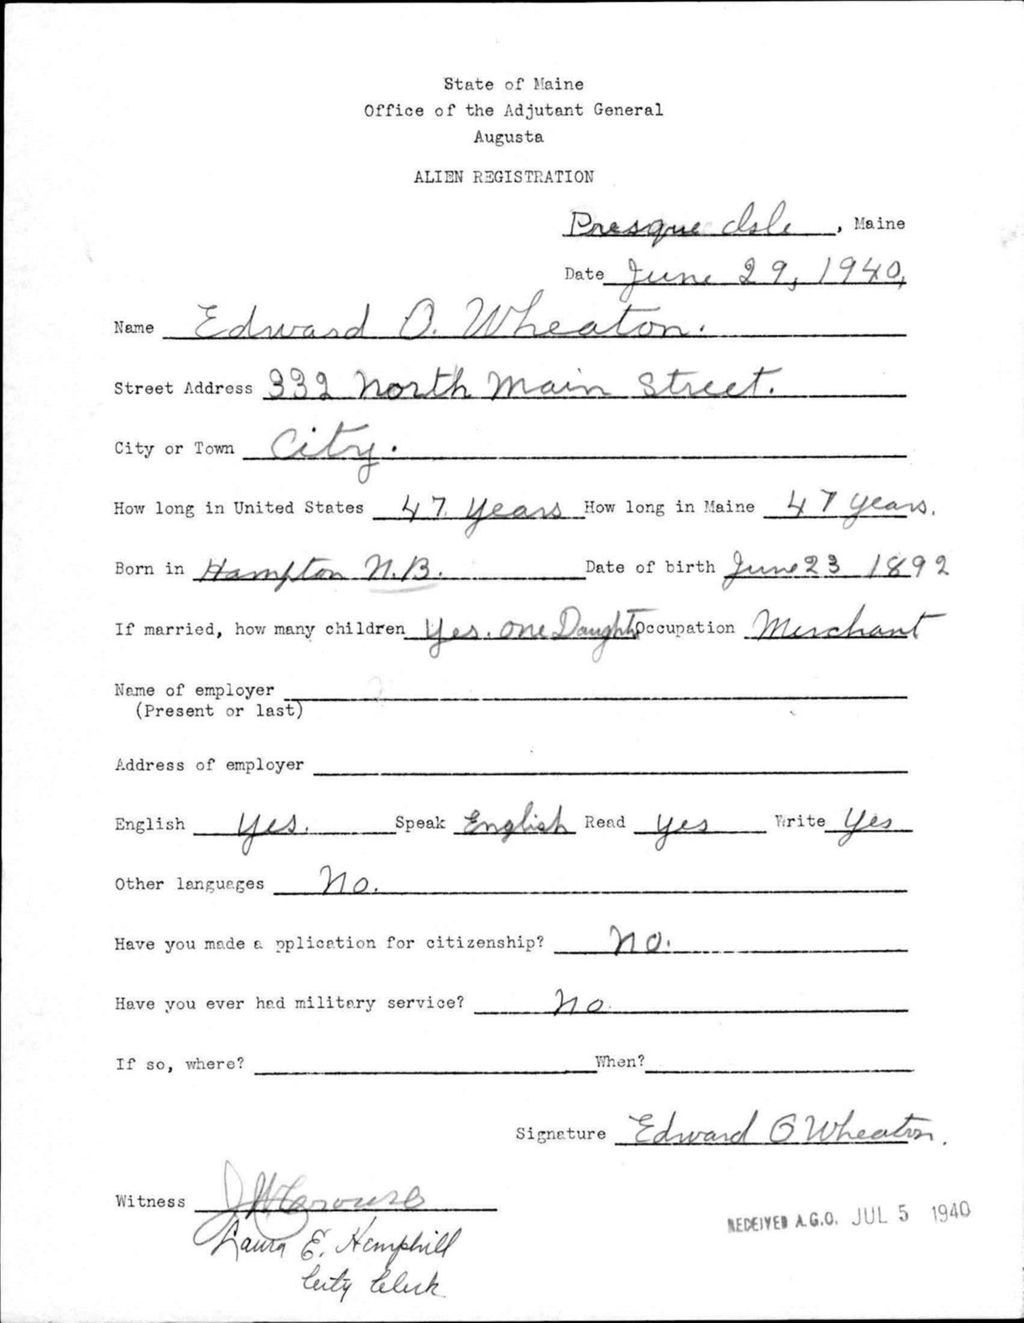 State of Maine
Office of the Adjutant General
Augusta
ALIEN REGISTRATION
Presque Isle, Maine
Date June 29, 1940,
Name Edward O. Wheaton.
Street Address 332 North Main Street.
City or Town City.
How long in United States 47 years How long in Maine 47 years.
Born in Hampton N.B. Date of birth June 23 1892
If married, how many children Yes. One Daught Occupation Merchant
Name of employer
(Present or last)
Address of employer
English Yes. Speak English Read Yes Write Yes
Other languages No.
Have you made a pplication for citizenship? No.
Have you ever had military service? No
If so, where? When?
Signature Edward O Wheaton.
Witness
Laura E. Hemphill
City Clerk
RECEIVED A.G.O. JUL 5 1940